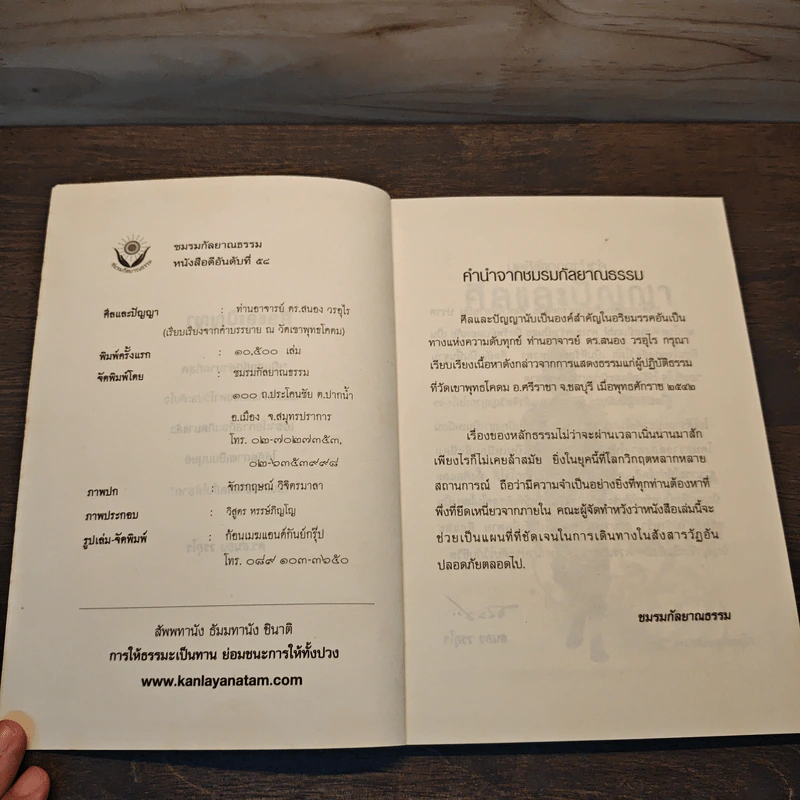 ชมรมกัลยาณธรรม
ชมรมกัลยาณธรรม
หนังสือดีอันดับที่ ๕๘
ศีลและปัญญา : ท่านอาจารย์ ดร.สนอง วรอุไร
(เรียบเรียงจากคำบรรยาย ณ วัดเขาพุทธโคดม)
พิมพ์ครั้งแรก : ๑๐,๕๐๐ เล่ม
จัดพิมพ์โดย : ชมรมกัลยาณธรรม
๑๐๐ ถ.ประโคนชัย ต.ปากน้ำ
อ.เมือง จ.สมุทรปราการ
โทร. ๐๒-๗๐๒๗๓๕๓,
๐๒-๖๓๕๓๙๙๘
ภาพปก : จักรกฤษณ์ วิจิตรมาลา
ภาพประกอบ : วิสูตร หรรษ์ภิญโญ
รูปเล่ม-จัดพิมพ์ : ก้อนเมฆแอนด์กันย์กรุ๊ป
โทร. ๐๘๙ ๑๐๓-๓๖๕๐
สัพพทานัง ธัมมทานัง ชินาติ
การให้ธรรมะเป็นทาน ย่อมชนะการให้ทั้งปวง
www.kanlayanatam.com
คำนำจากชมรมกัลยาณธรรม
ศีลและปัญญานับเป็นองค์สำคัญในอริยมรรคอันเป็น
ทางแห่งความดับทุกข์ ท่านอาจารย์ ดร.สนอง วรอุไร กรุณา
เรียบเรียงเนื้อหาดังกล่าวจากการแสดงธรรมแก่ผู้ปฏิบัติธรรม
ที่วัดเขาพุทธโคดม อ.ศรีราชา จ.ชลบุรี เมื่อพุทธศักราช ๒๕๔๒
เรื่องของหลักธรรมไม่ว่าจะผ่านเวลาเนิ่นนานมาสัก
เพียงไรก็ไม่เคยล้าสมัย ยิ่งในยุคนี้ที่โลกวิกฤตหลากหลาย
สถานการณ์ ถือว่ามีความจำเป็นอย่างยิ่งที่ทุกท่านต้องหาที่
พึ่งที่ยึดเหนี่ยวจากภายใน คณะผู้จัดทำหวังว่าหนังสือเล่มนี้จะ
ช่วยเป็นแผนที่ที่ชัดเจนในการเดินทางในสังสารวัฏอัน
ปลอดภัยตลอดไป.
ชมรมกัลยาณธรรม